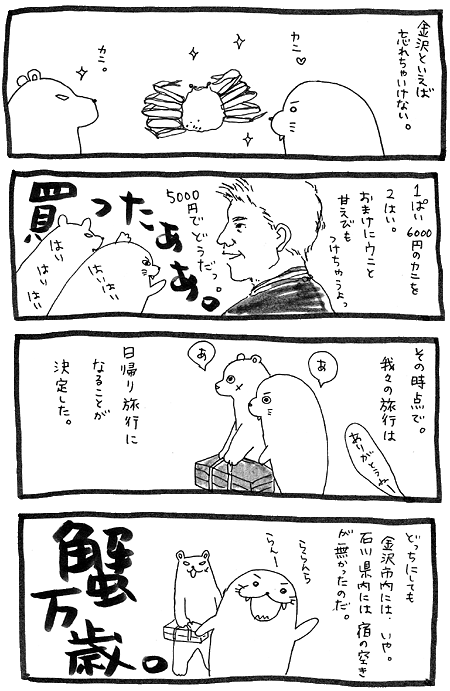 金沢といえば
忘れちゃいけない。
カニ♡
カニ。
1ぱい6000円のカニを
2はい。
おまけにウニと
甘えびも
つけちゃうよっ
5000
円でどうだっ。
買ったぁぁぁ。
はい
はい
はい
はいはい
その時点で。
我々の旅行は
ありがとうね
あ
あ
日帰り旅行に
なることが
決定した。
どっちにしても
金沢市内には、いや。
石川県内には宿の空き
が無かったのだ。
らららんら
らんー
蟹
万
歳。